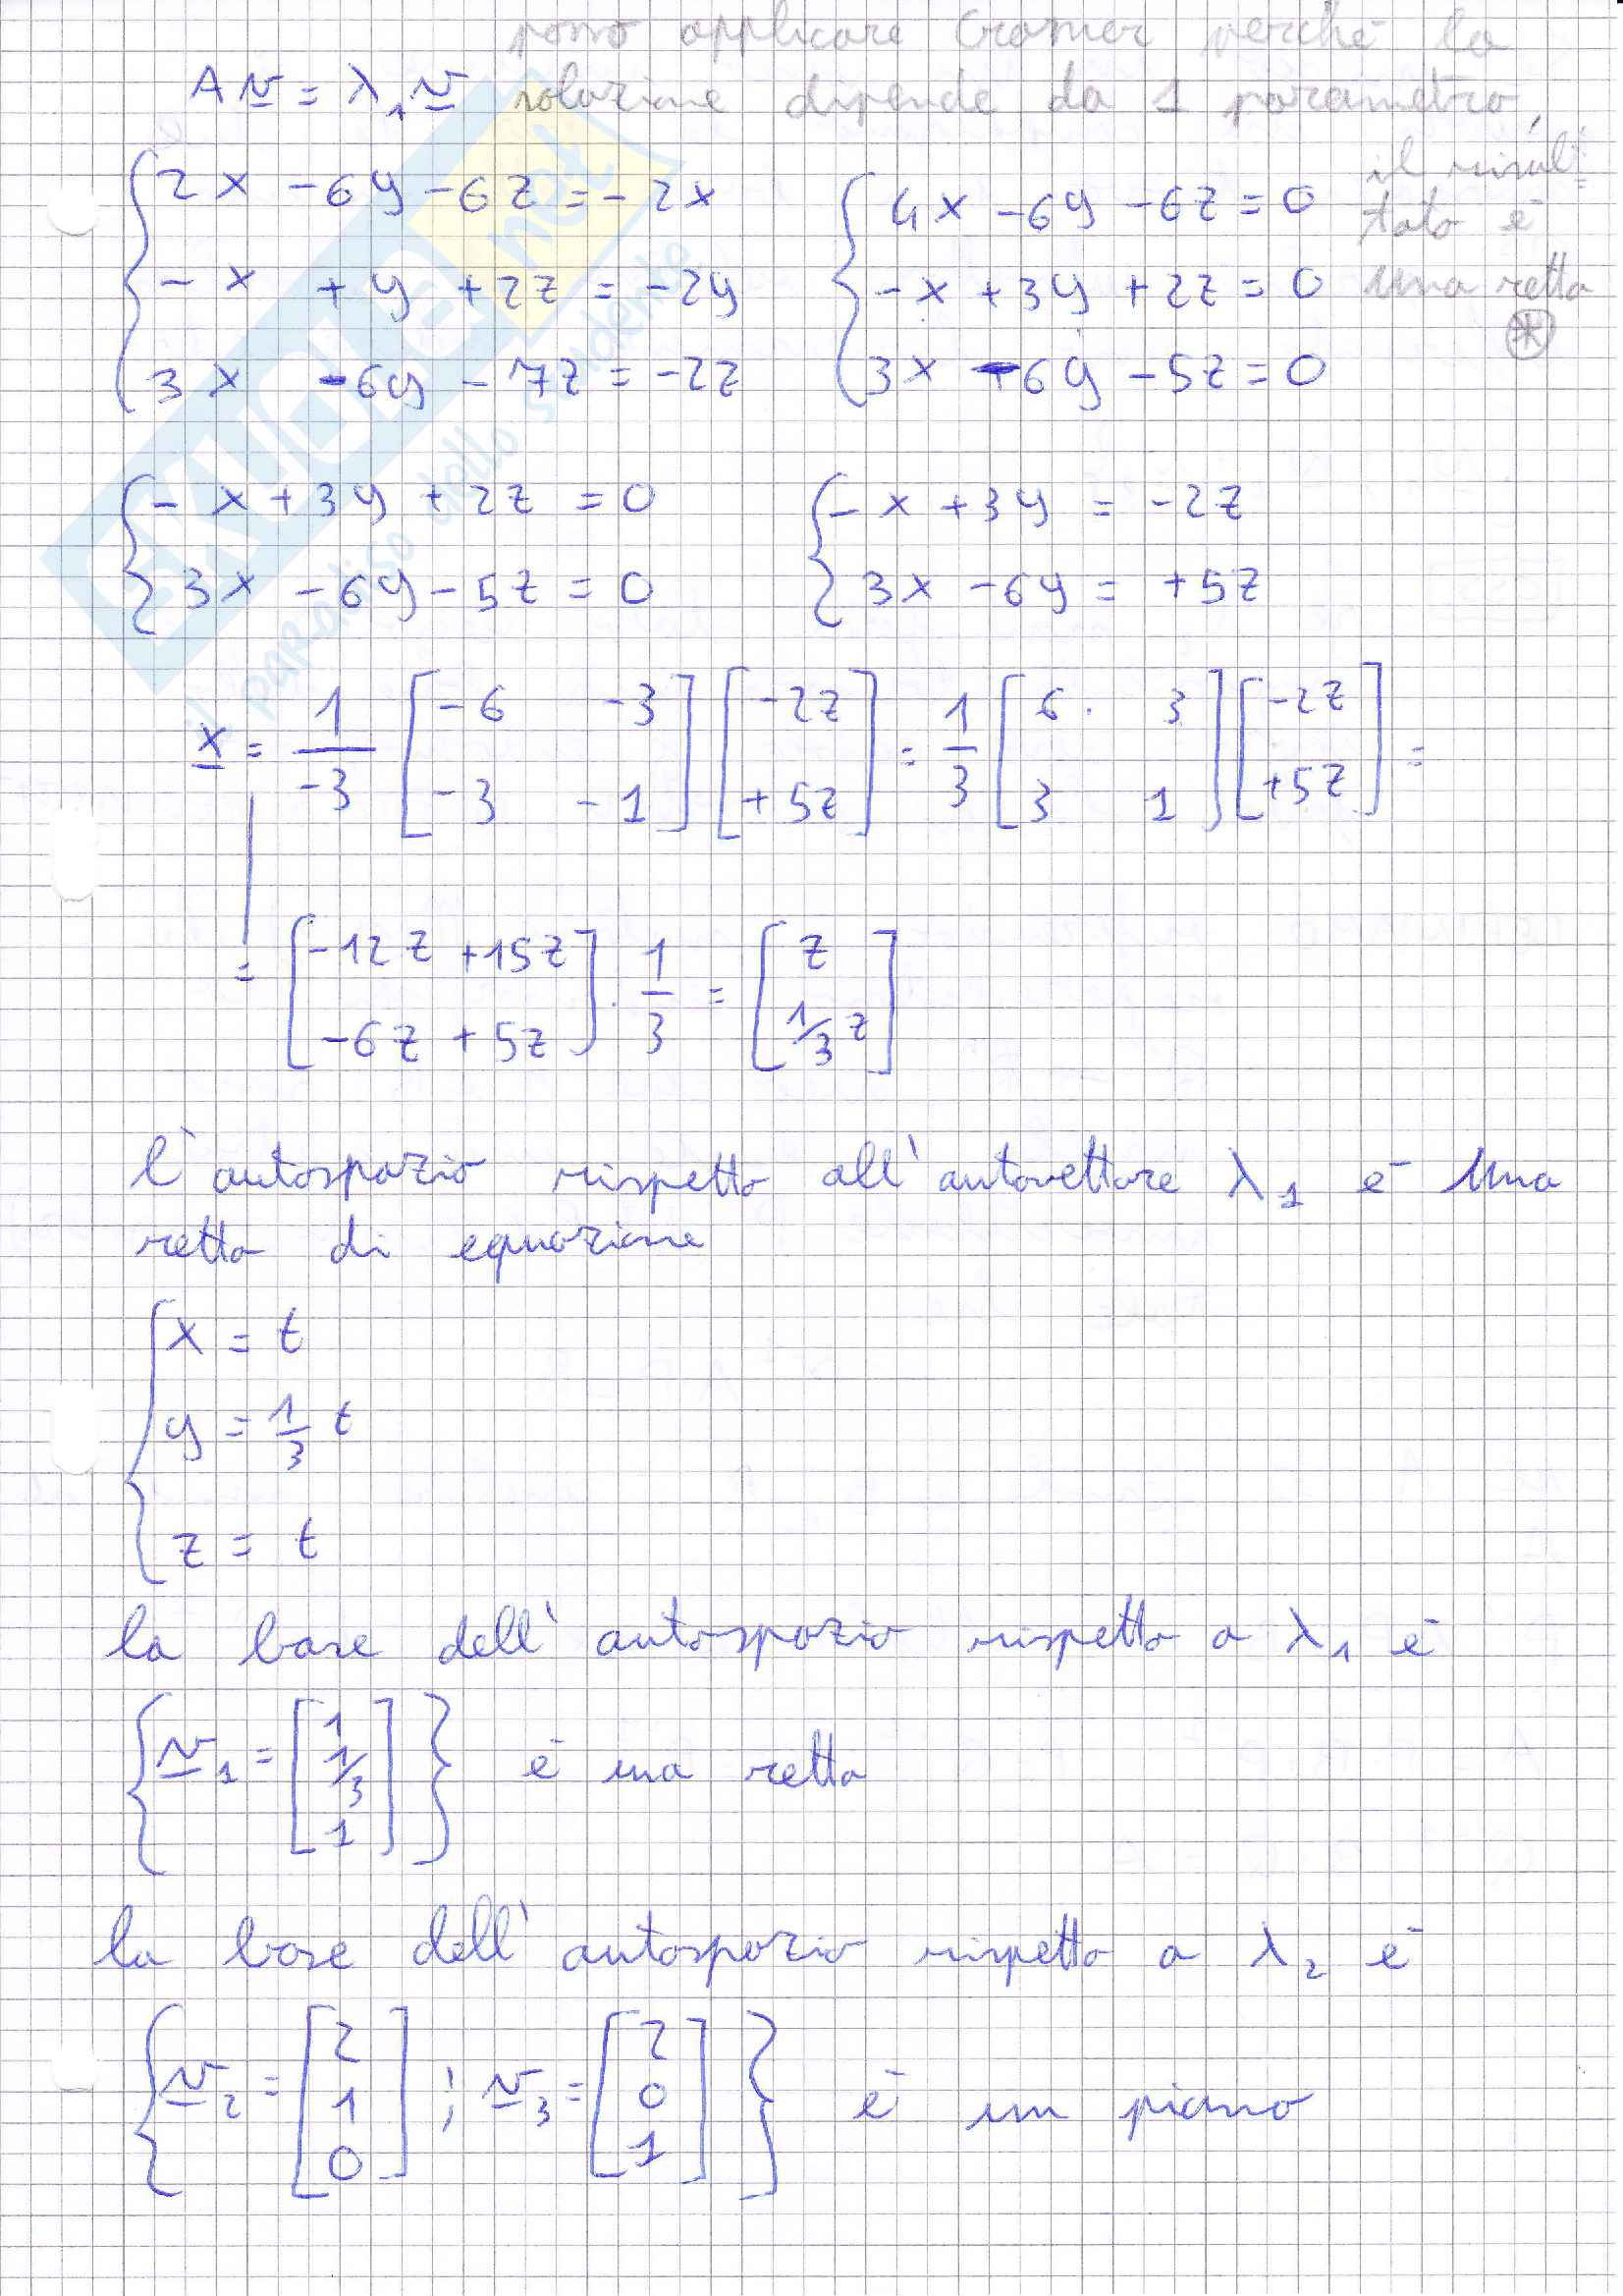 posso applicare Cramer perché la
A v = λ₁ v soluzione dipende da 1 parametro,
il risul-
tato è
una retta
⊛
{ 2x - 6y - 6z = -2x
- x + y + 2z = -2y
3x - 6y - 7z = -2z
{ 4x - 6y - 6z = 0
- x + 3y + 2z = 0
3x - 6y - 5z = 0
{ - x + 3y + 2z = 0
3x - 6y - 5z = 0
{ - x + 3y = -2z
3x - 6y = +5z
x = 1/-3 [-6 -3; -3 -1] [-2z; +5z] = 1/3 [6 3; 3 1] [-2z; +5z] =
= [-12z +15z; -6z + 5z] · 1/3 = [z; 1/3 z]
l'autospazio rispetto all'autovettore λ₁ è una
retta di equazione
{ x = t
y = 1/3 t
z = t
la base dell'autospazio rispetto a λ₁ è
{ v₁ = [1; 1/3; 1] } è una retta
la base dell'autospazio rispetto a λ₂ è
{ v₂ = [2; 1; 0] ; v₃ = [2; 0; 1] } è un piano
SKUOLA.net
il paradiso dello studente